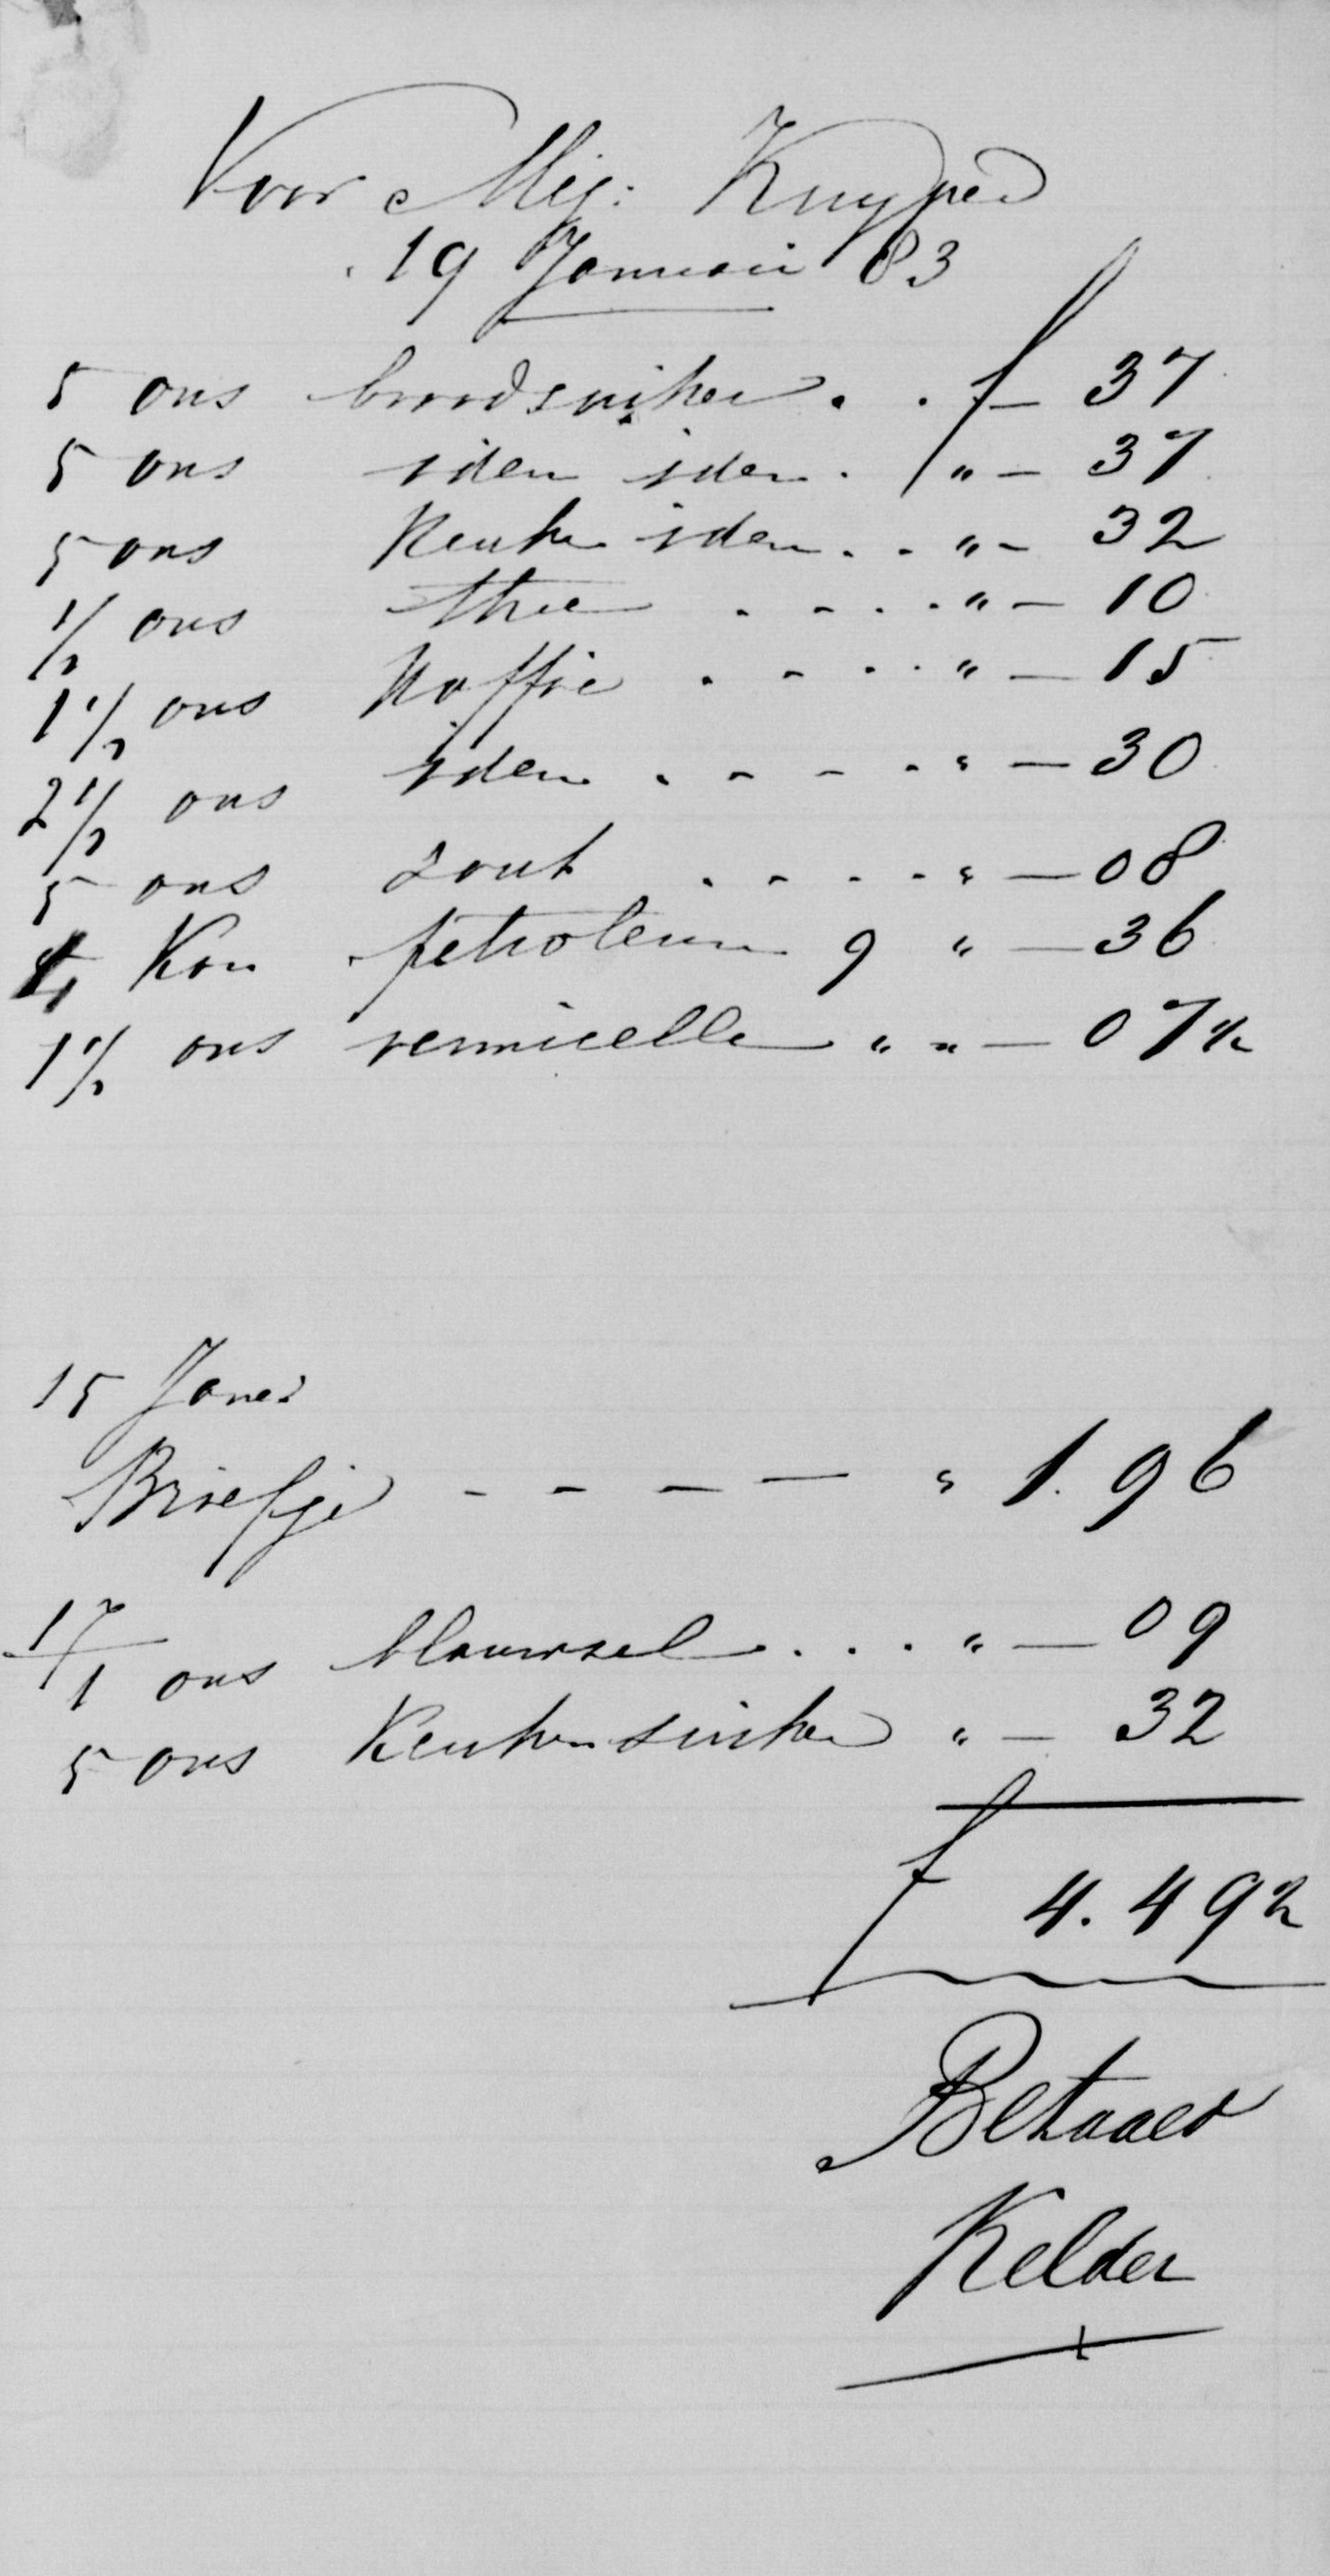 Voor Mej: Kuyper
19 Januari 83
5 ons broodsuiker . . f — 37
5 ons idem idem . " — 37
5 ons Keuken idem . . " — 32
1/2 ons thee . . . . " — 10
1 1/2 ons Koffie . . . . " — 15
2 1/2 ons idem . . . . " — 30
5 ons zout . . . . " — 08
4 Kan petroleum 9 " — 36
1 1/2 ons vermicelle " " — 07 1/2
15 Janri
Briefje - - - - " 1.96
17/1
1 ons blauwsel . . . " — 09
5 ons Keukensuiker " — 32
f 4.49 2
Betaald
Kelder